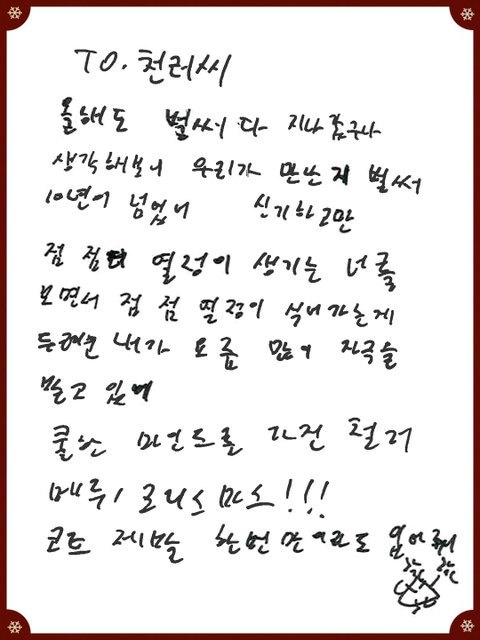 TO. 천러씨
올해도 벌써 다 지나갔구나
생각해보니 우리가 만난지 벌써
10년이 넘었어 신기하고만
점 점더 열정이 생기는 너를
보면서 점 점 열정이 식어가는게
느껴진 내가 요즘 많이 자극을
받고 있어
쿨한 마인드를 가진 천러
메루ㅣ크리스마스!!!
코트 제발 한번만이라도 입어줘